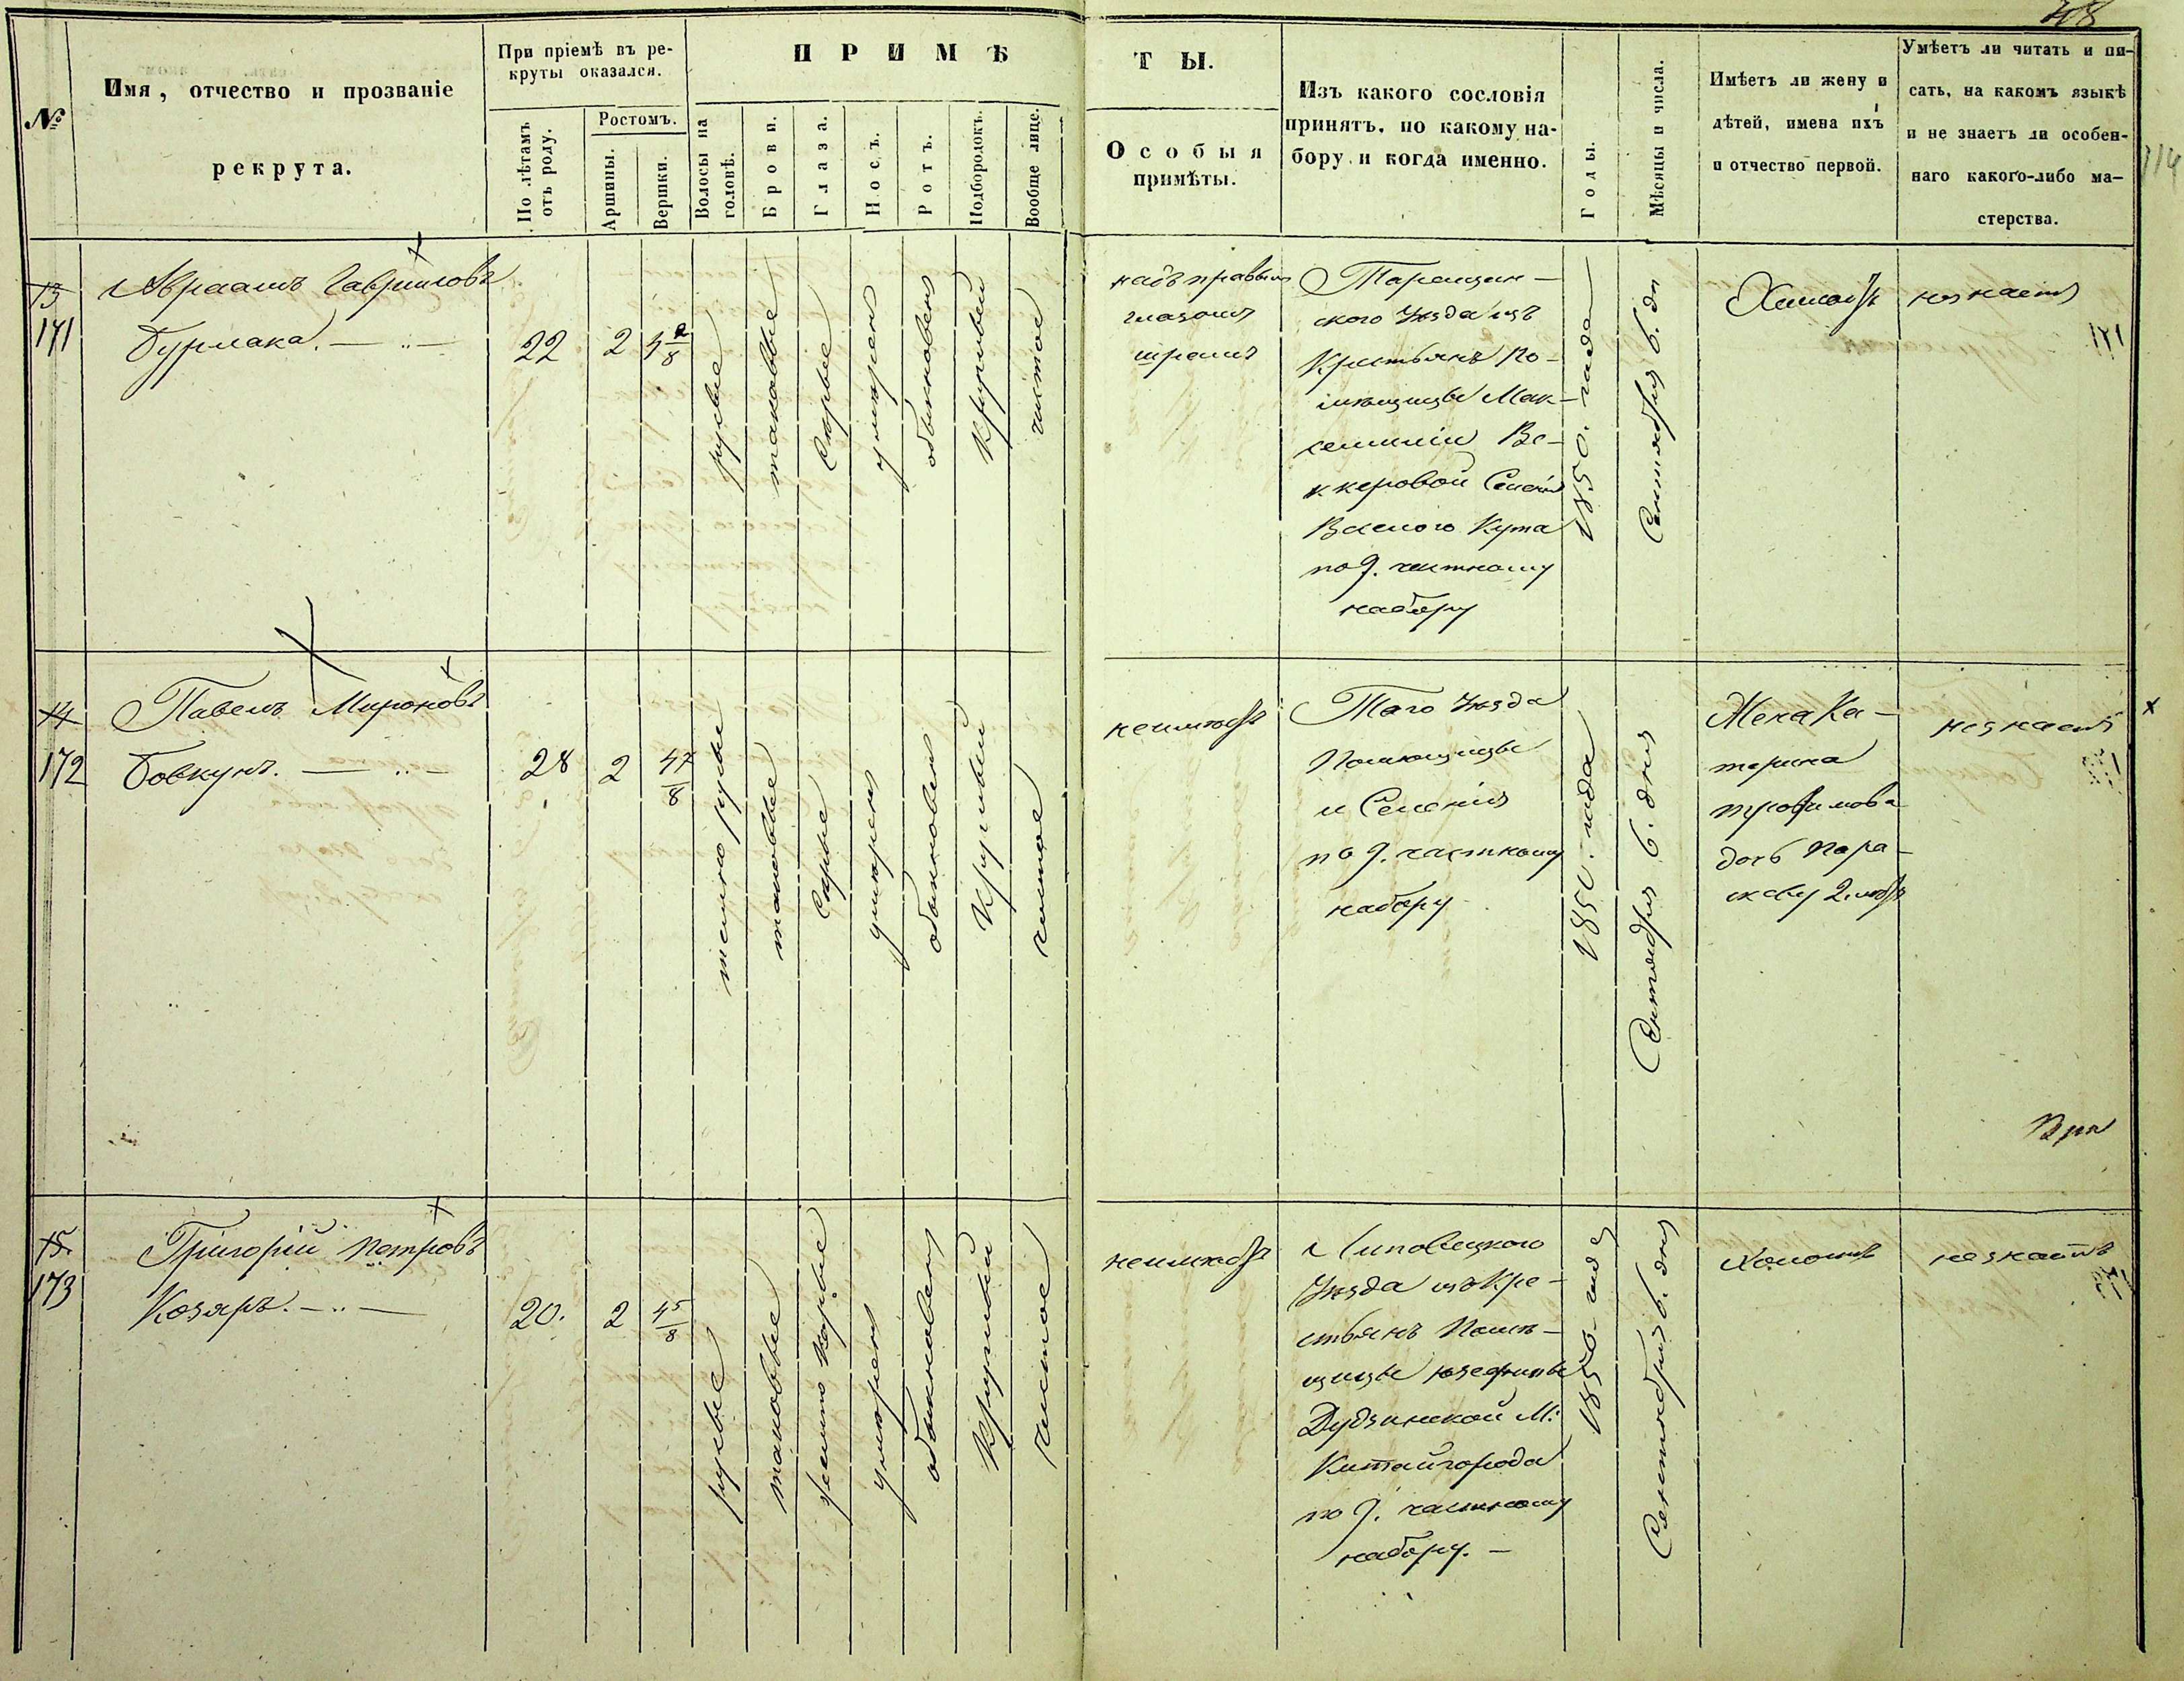 48
№
Имя, отчество и прозваніе
рекрута.
При пріемѣ въ ре-
круты оказался.
По лѣтамъ
отъ роду.
Ростомъ.
Аршины.
Вершки.
ПРИМѢ
Волосы на
головѣ.
Брови.
Глаза.
Носъ.
Ротъ.
Подбородокъ.
Вообще лице.
ТЫ.
Особыя
примѣты.
Изъ какого сословія
принятъ, по какому на-
бору и когда именно.
Годы.
Мѣсяцы и числа.
Имѣетъ ли жену и
дѣтей, имена ихъ
и отчество первой.
Умѣетъ ли читать и пи-
сать, на какомъ языкѣ
и не знаетъ ли особен-
наго какого-либо ма-
стерства.
13
171
Авраамъ Гавриловъ
Бурлака.
22
2
4 2/8
русые
таковые
Сѣрые
умѣренъ
обыкновенъ
Круглый
чистое
надъ правымъ
глазомъ
шрамъ
Таращан-
ского Уѣзда изъ
Крестьянъ По-
мѣщицы Мак-
семиліи
Селенія
Кута
по 9. частному
набору
1850. года
Сентября 6. дн
Холостъ
незнаетъ
14
172
Павелъ Мироновъ
Бовкунъ.
28
2
4 7/8
темно русые
таковые
Сѣрые
умѣренъ
обыкновенъ
Круглый
чистое
неимѣетъ
Того Уѣзда
Помѣщицы
и Селенія
по 9. частному
набору
1850. года
Сентября 6. дня
Жена Ка-
терина
трофимова
дочь Пара-
скеву 2. лѣтъ
незнаетъ
15.
173
Григорій Петровъ
Козяръ.
20.
2
4 5/8
русые
таковые
темно Карые
умѣренъ
обыкновенъ
Круглый
чистое
неимѣетъ
Липовецкого
Уѣзда изъ Кре-
стьянъ Помѣ-
щицы юзефины
Дудзинской М:
Китайгорода
по 9. частному
набору.
1850. года
Сентября 6. дня
Холостъ
незнаетъ